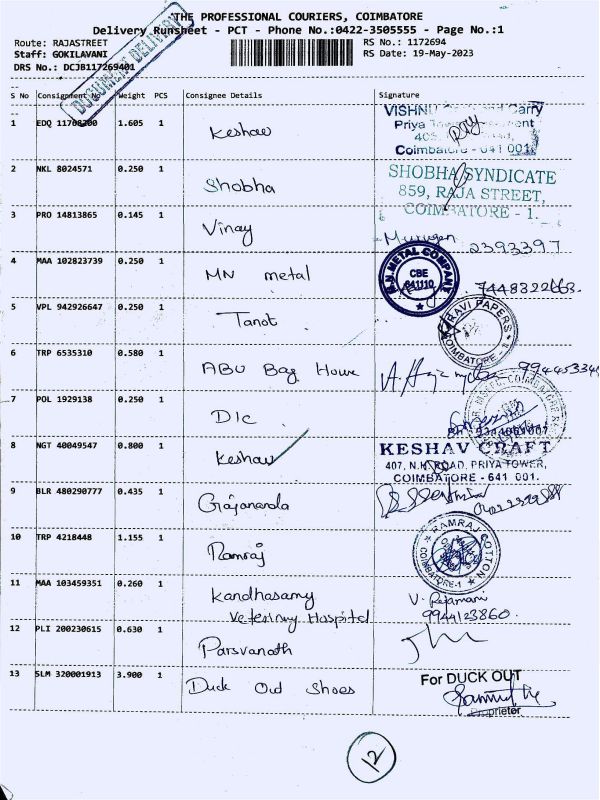 THE PROFESSIONAL COURIERS, COIMBATORE
Delivery Runsheet - PCT - Phone No.:0422-3505555 - Page No.:1
Route: RAJASTREET RS No.: 1172694
Staff: GOKILAVANI RS Date: 19-May-2023
DRS No.: DCJB117269401
DOCUMENT DELIVERY
S No Consignment No Weight PCS Consignee Details Signature
1 EDQ 1.605 1 Keshav
VISHNU Carry
Priya
Coimbatore - 641 001
2 NKL 8024571 0.250 1 Shobha
SHOBHA SYNDICATE
859, RAJA STREET,
COIMBATORE - 1.
3 PRO 14813865 0.145 1 Vinay
Murugan 2393397
4 MAA 102823739 0.250 1 MN metal
METAL COMPANY
CBE
641110
5 VPL 942926647 0.250 1 Tanot
PAPERS
COIMBATORE
6 TRP 6535310 0.580 1 ABU Bag House
7 POL 1929138 0.250 1 DIC
COIMBATORE
8 NGT 40049547 0.800 1 Keshav
KESHAV CRAFT
407, N.H. ROAD, PRIYA TOWER,
COIMBATORE - 641 001.
9 BLR 480290777 0.435 1 Gajananda
10 TRP 4218448 1.155 1 Ramraj
RAMRAJ COTTON
COIMBATORE-1
11 MAA 103459351 0.260 1 Kandhasamy
Veterinary Hospital
V. Rajamani
9944123860
12 PLI 200230615 0.630 1 Parsvanath
13 SLM 320001913 3.900 1 Duck Out Shoes
For DUCK OUT
Proprietor
12